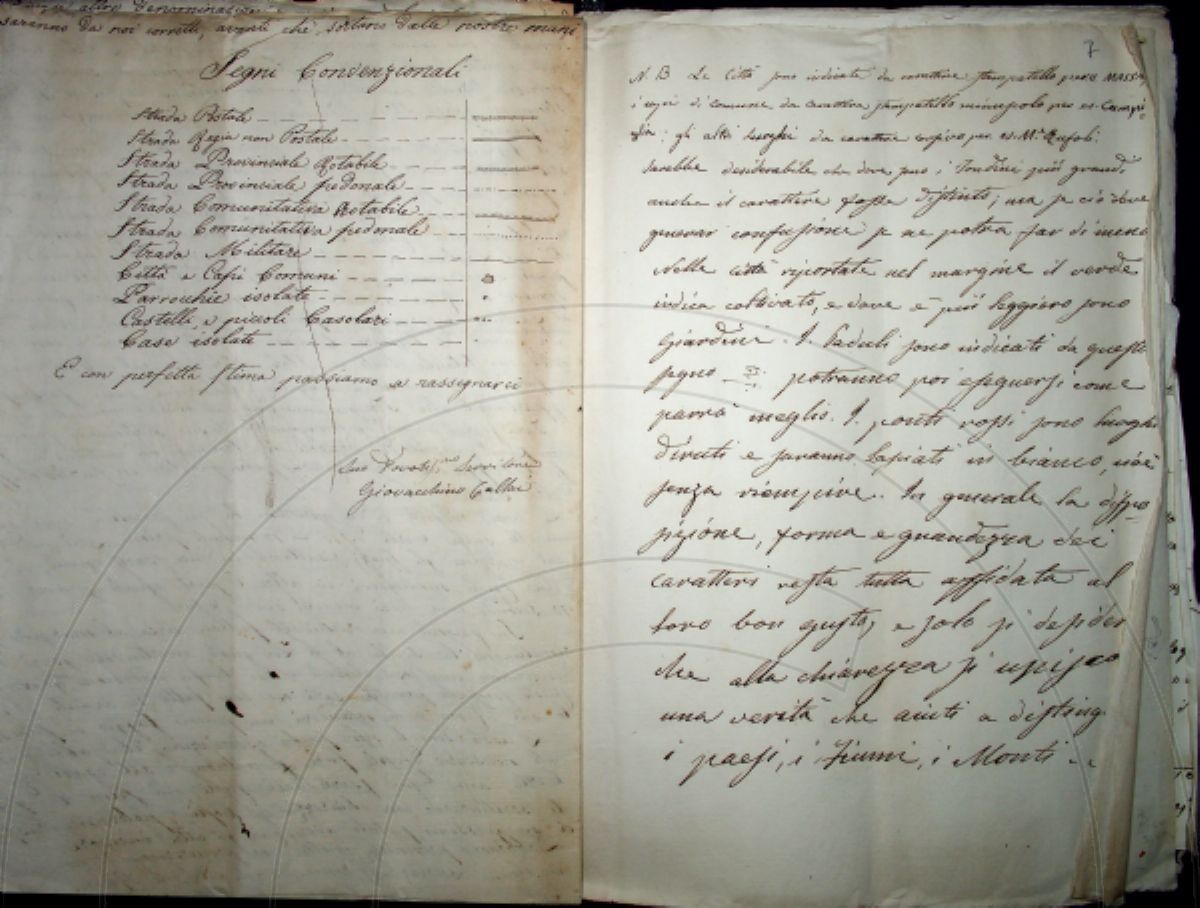 altre denominazioni
saranno da noi corretti, avanti che sortano dalle nostre mani
Segni Convenzionali
Strada Postale
Strada Regia non Postale
Strada Provinciale Rotabile
Strada Provinciale pedonale
Strada Comunitativa Rotabile
Strada Comunitativa pedonale
Strada Militare
Città e Capi Comuni
Parrochie isolate
Castelli, e piccoli Casolari
Case isolate
E con perfetta stima passiamo a rassegnarci
Suo Devotiss.mo Servitore
Giovacchino Callai
7
N. B. Le Città sono indicate da carattere stampatello MASSA
i capi di comune, da carattere stampatello minuscolo per es. Campi
glia: gli altri luoghi da carattere corsivo per es. M.e Rufoli.
Sarebbe desiderabile che dove sono i Tondini più grandi
anche il carattere fosse distinto; ma se ciò deve
generar confusione se ne potrà far di meno
Nelle città riportate nel margine il verde
indica coltivato, e dove è più leggiero sono
Giardini. I Paduli sono indicati da questo
segno potranno poi eseguersi come
parrà meglio. I ponti rossi sono luoghi
diruti e saranno lasciati in bianco, cioè
senza riempire. In generale la dispo
sizione, forma e grandezza dei
caratteri resta tutta affidata al
loro bon gusto, e solo si desider
che alla chiarezza si unisca
una verità che aiuti a disting
i paesi, i Fiumi, i Monti